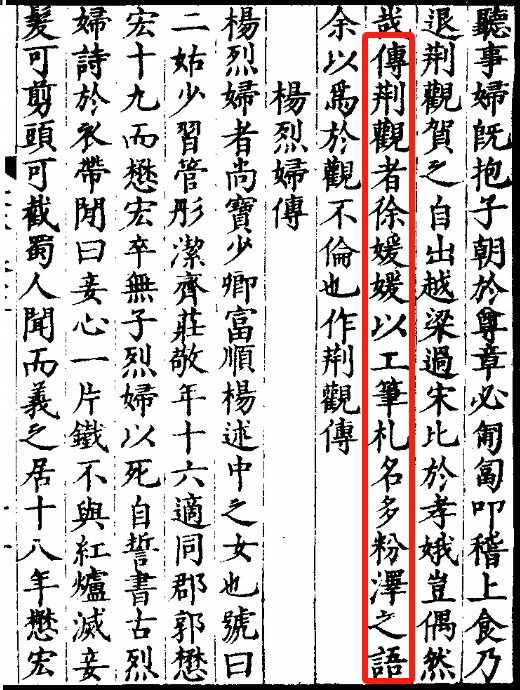 聽事婦既抱子朝於尊章必匍匐叩稽上食乃
退荆觀賀之自出越梁過宋比於孝娥豈偶然
哉傳荆觀者徐媛媛以工筆札名多粉澤之語
余以為於觀不倫也作荆觀傳
楊烈婦傳
楊烈婦者尚寶少卿富順楊述中之女也號曰
二姑少習管彤潔齊莊敬年十六適同郡郭懋
宏十九而懋宏卒無子烈婦以死自誓書古烈
婦詩於衣帶間曰妾心一片鐵不與紅爐滅妾
髮可剪頭可截蜀人聞而義之居十八年懋宏